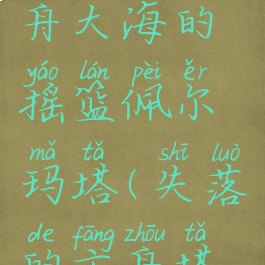 舟大海的
yáo lán pèi ěr
摇篮佩尔
mǎ tǎ shī luò
玛塔(失落
de fāng zhōu tǎ
的方舟塔